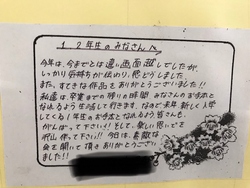 １、２年生のみなさんへ
今年は、今までとは違い画面越しでしたが、
しっかり気持ちが伝わり、感どうしました。
また、すてきな作品をありがとうございました!!
私達は、卒業までの残りの時間、みなさんのお手本と
なれるよう生活して行きます。なので、来年、新しく入学
してくる１年生のお手本となれるよう皆さんも、
がんばって下さい!!そして、楽しい思いでを
沢山作って下さい!!今日は、素敵な
会を開いて頂きありがとうござい
ました!!